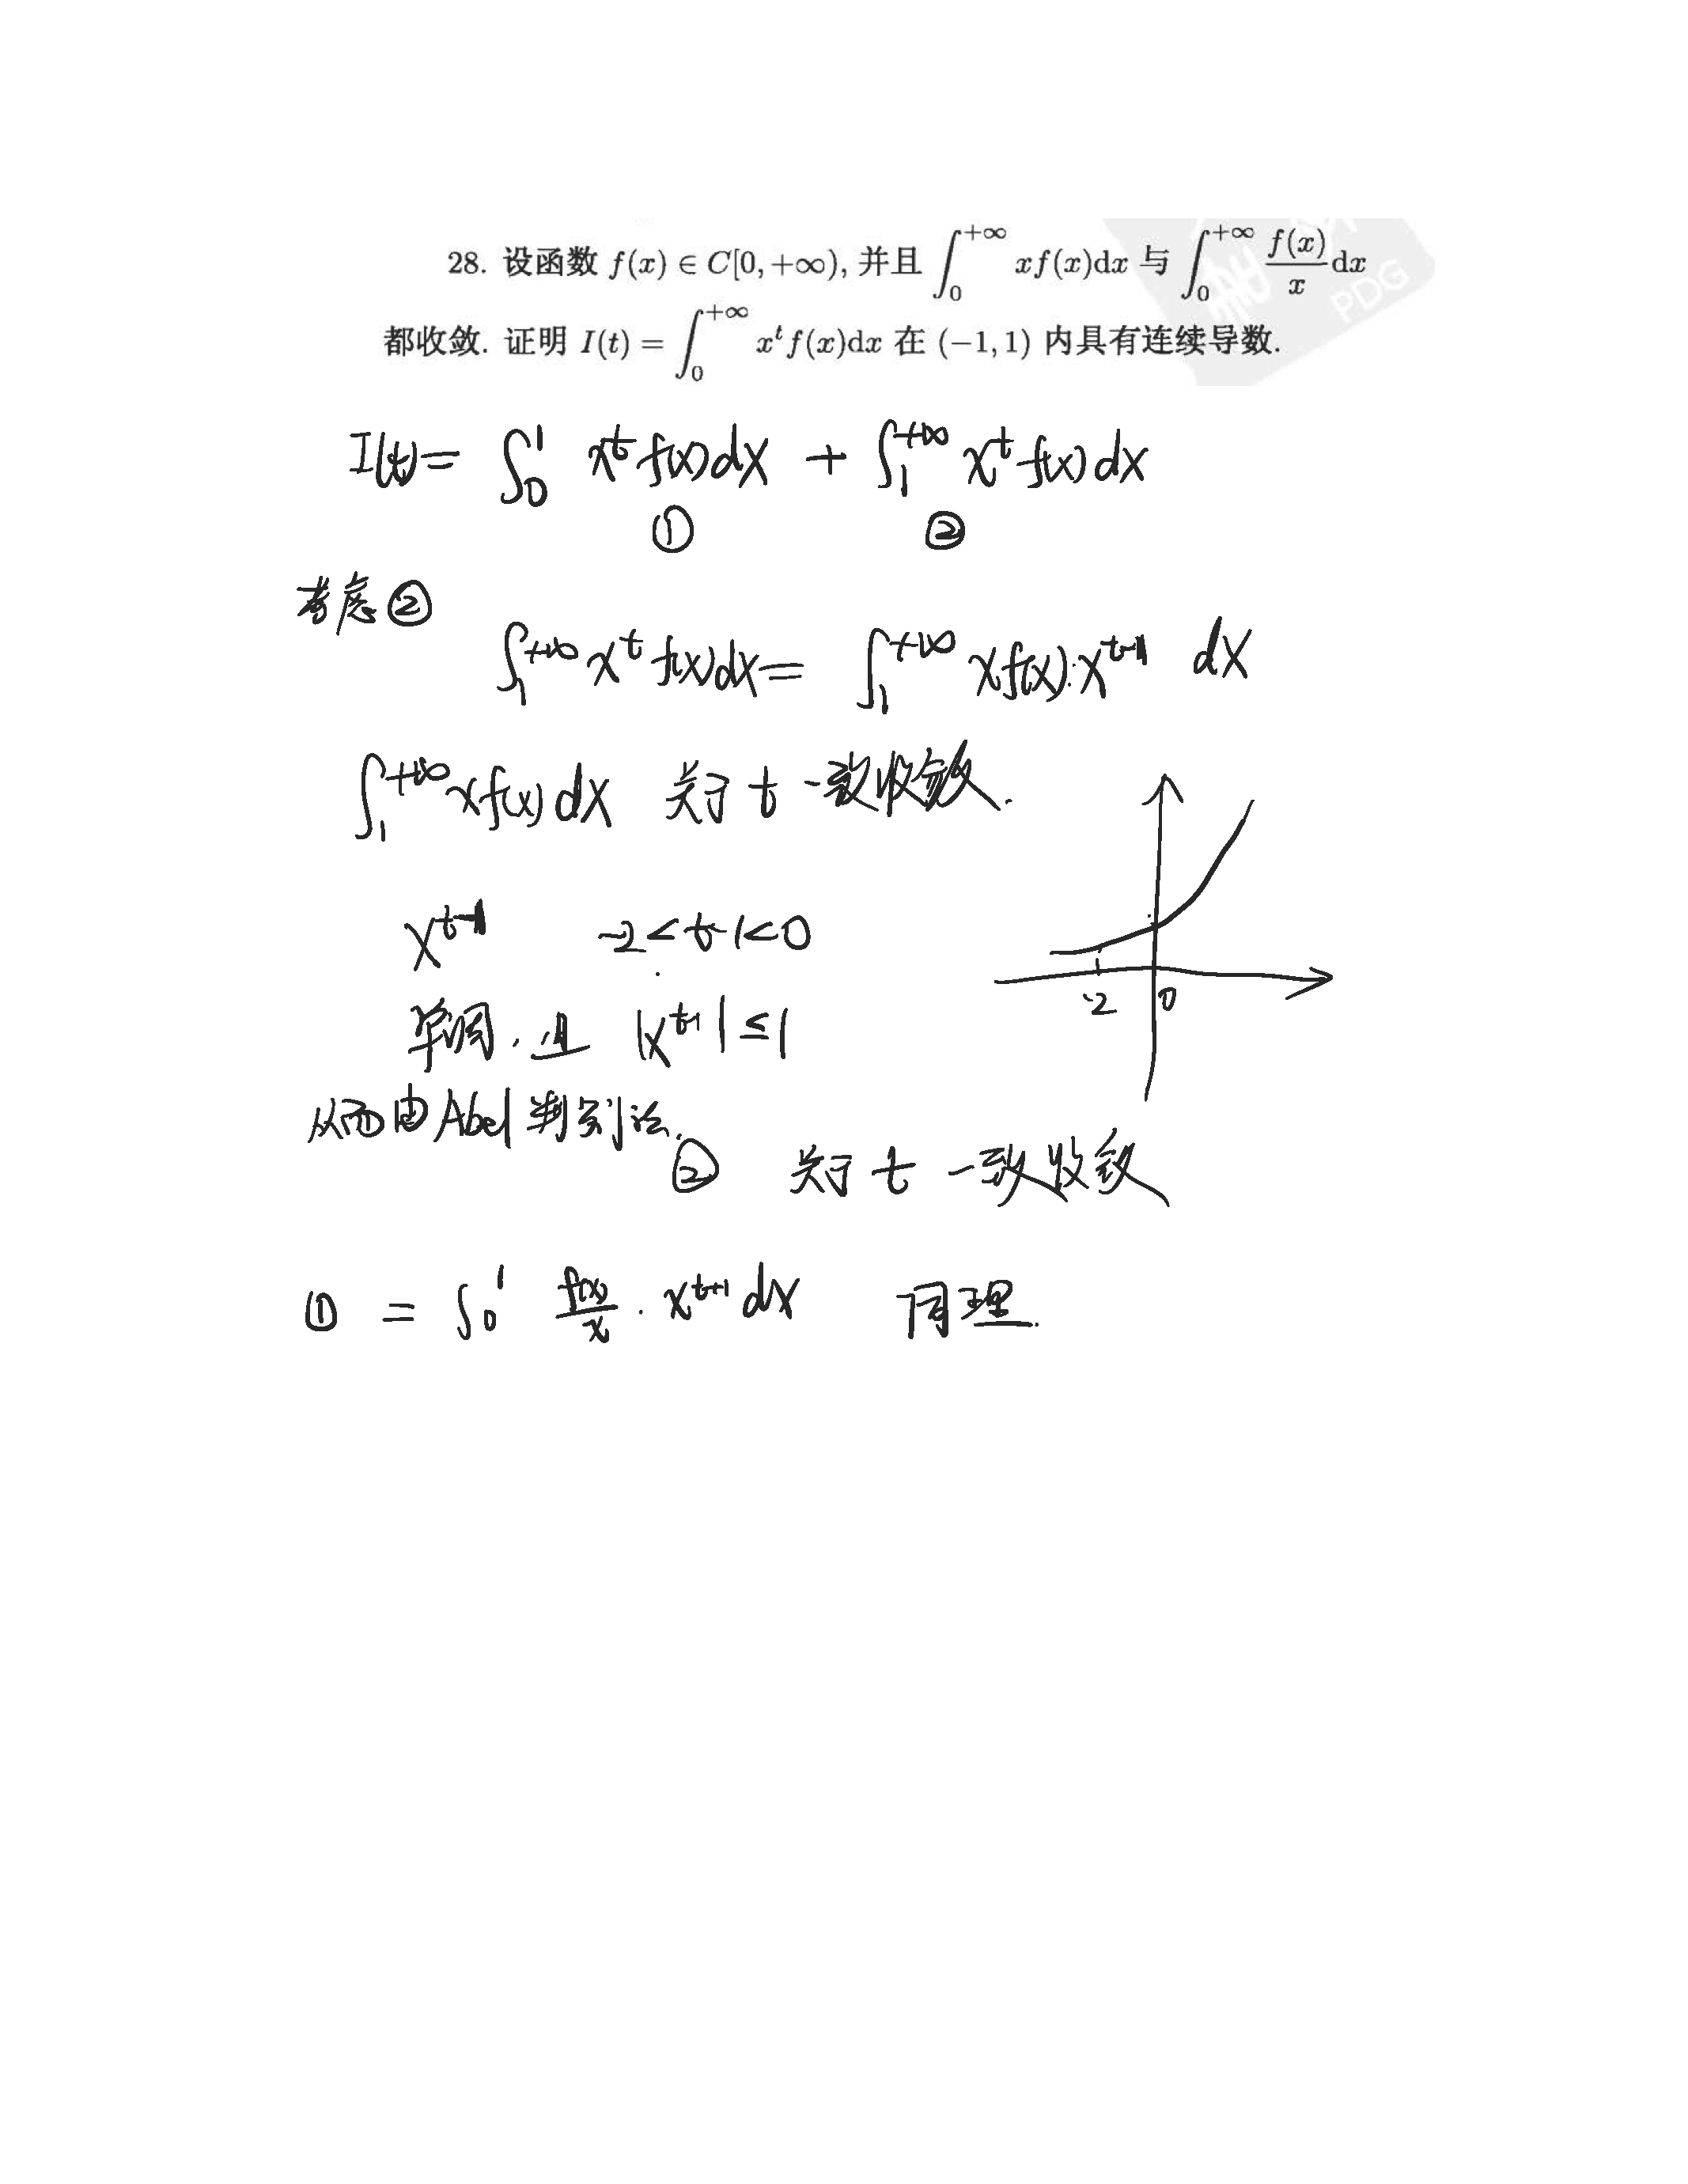 28. 设函数 f(x) ∈ C[0, +∞), 并且 ∫₀^{+∞} xf(x)dx 与 ∫₀^{+∞} f(x)/x dx
都收敛. 证明 I(t) = ∫₀^{+∞} x^t f(x)dx 在 (−1, 1) 内具有连续导数.
PDG
I(t) = ∫₀^1 x^t f(x)dx + ∫₁^{+∞} x^t f(x)dx
① ②
考虑②
∫₁^{+∞} x^t f(x)dx = ∫₁^{+∞} xf(x)·x^{t-1} dx
∫₁^{+∞} xf(x)dx 关于 t 一致收敛.
x^{t-1} -2<t-1<0
单调. 且 |x^{t-1}| ≤ 1
-2 0
从而由Abel判别法.
② 关于 t 一致收敛
① = ∫₀^1 f(x)/x · x^{t+1} dx 同理.